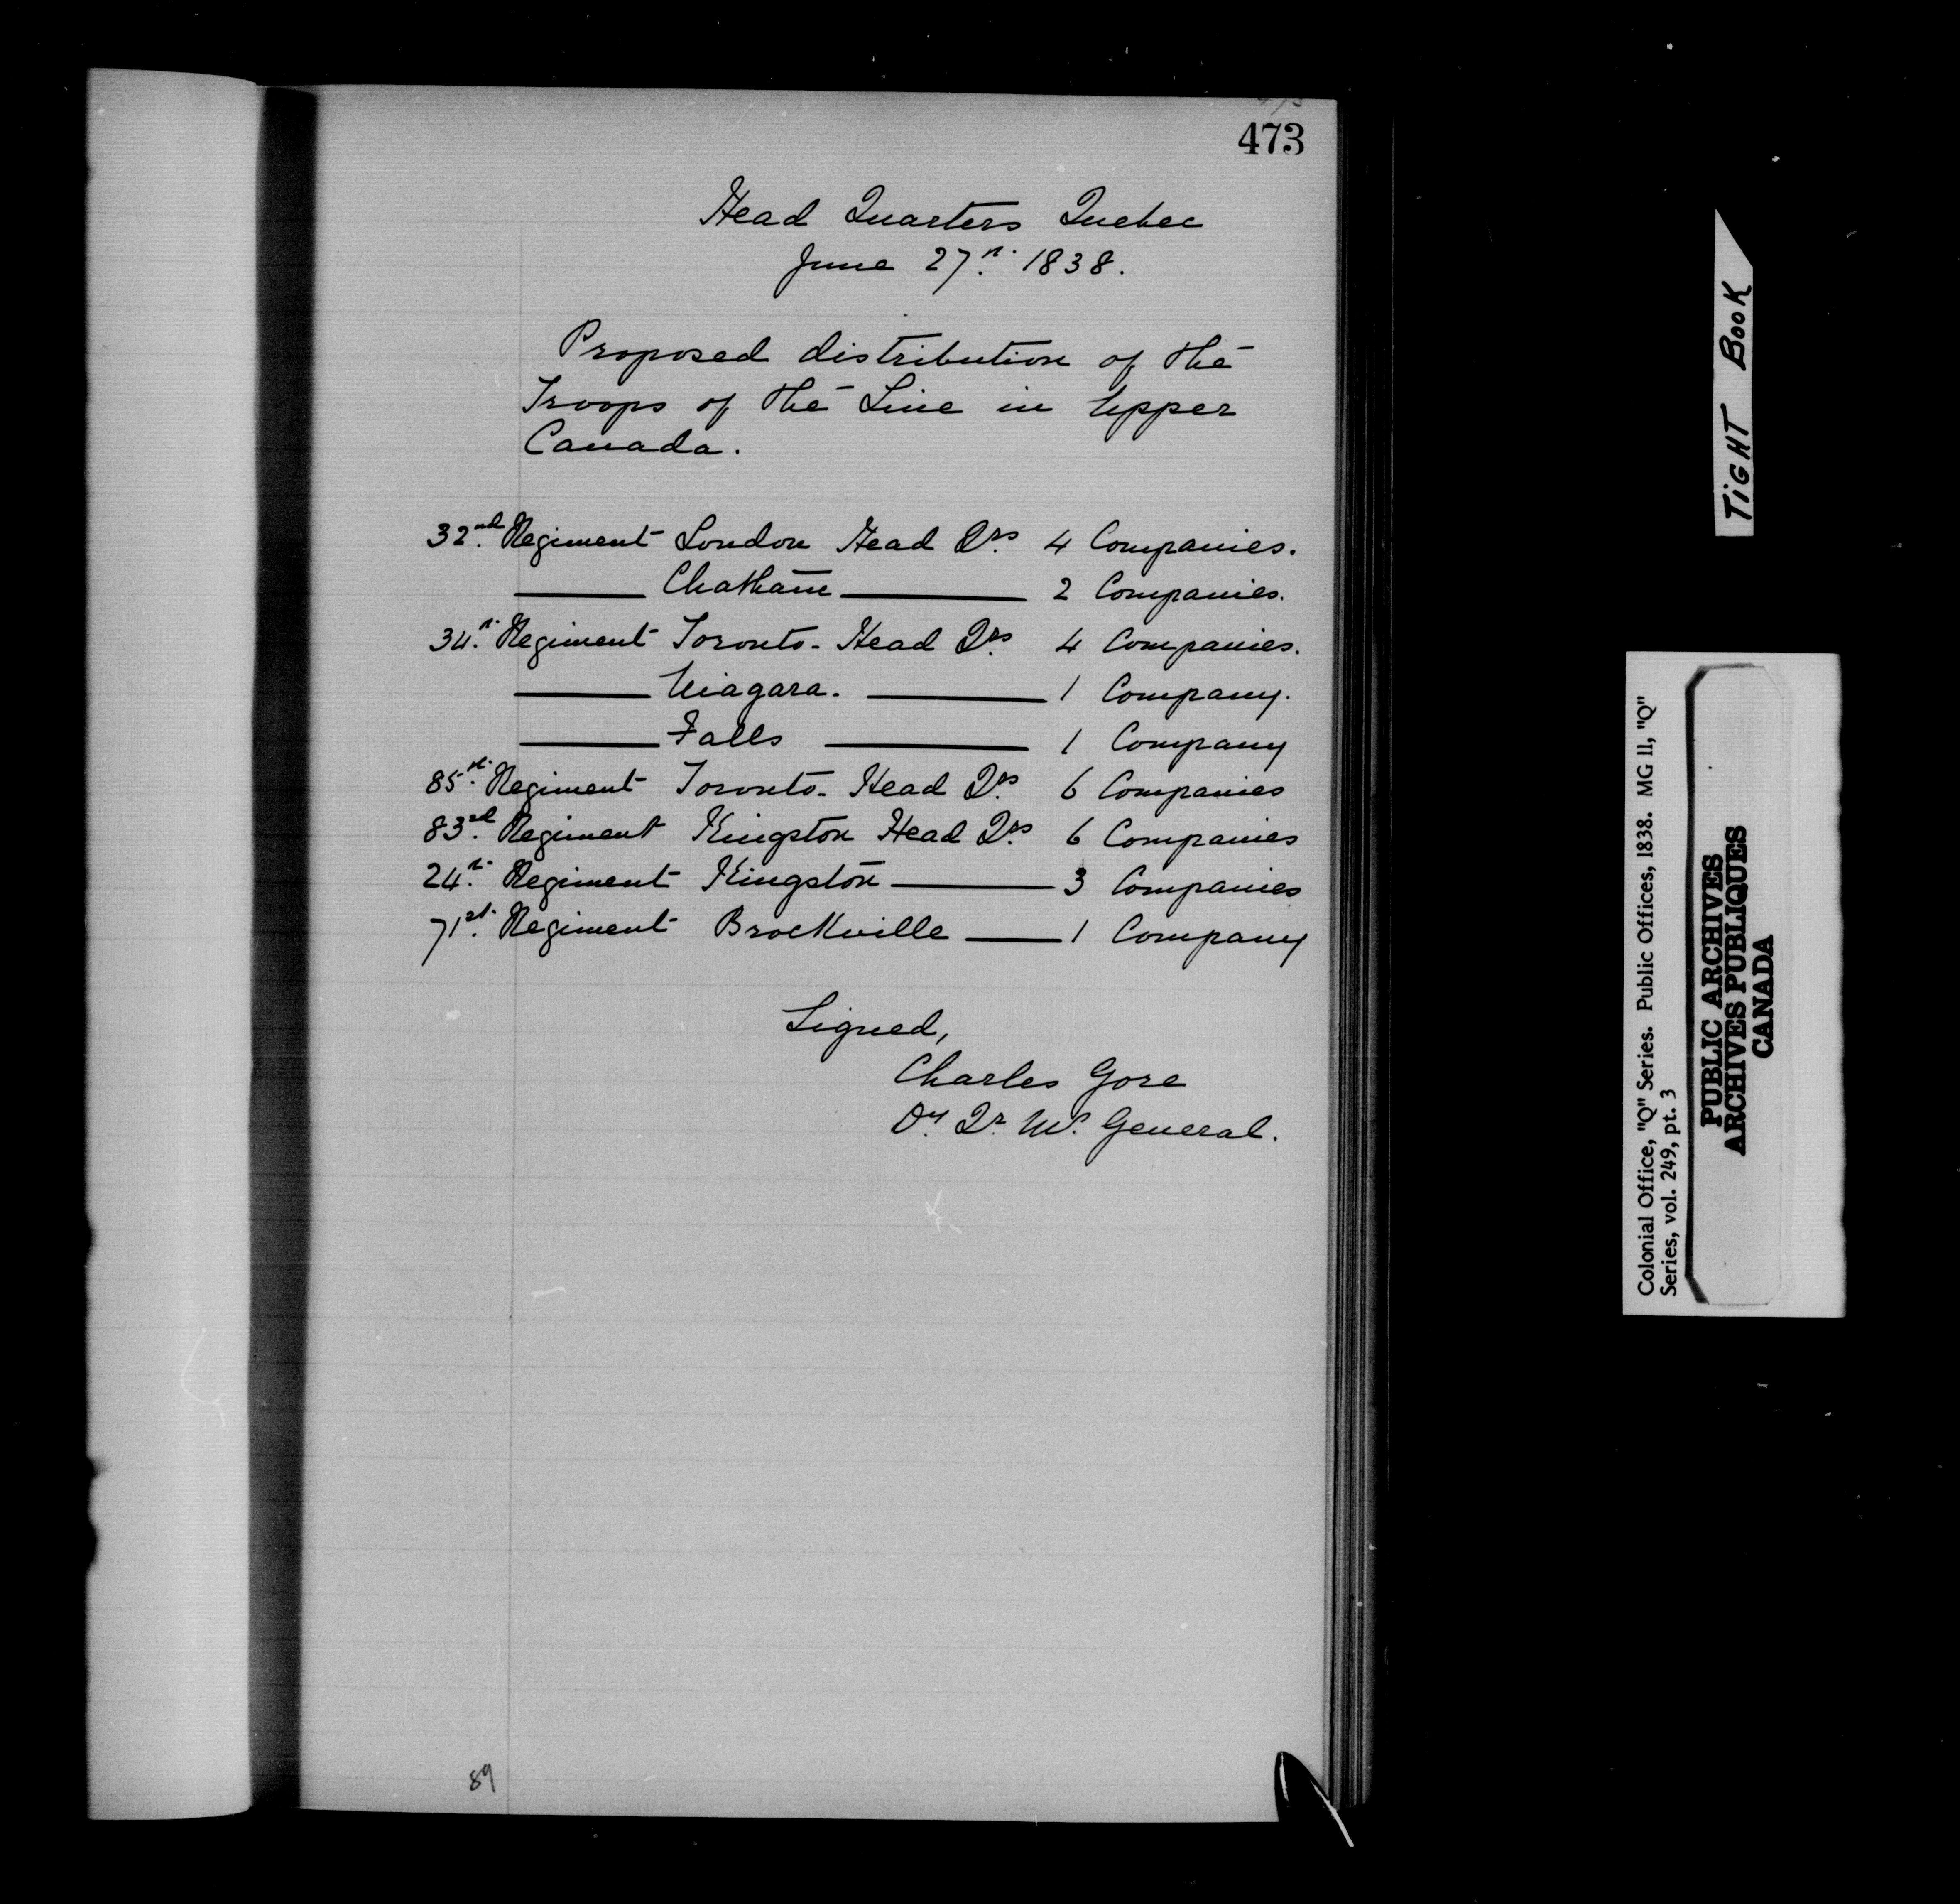 473
Head Quarters Quebec
June 27th. 1838.
Proposed distribution of the
Troops of the Line in Upper
Canada.
32nd. Regiment London Head Qrs. 4 Companies.
——— Chatham ——— 2 Companies.
34th. Regiment Toronto - Head Qrs. 4 Companies.
——— Niagara. ——— 1 Company.
——— Falls ——— 1 Company
85th. Regiment Toronto - Head Qrs. 6 Companies
83rd. Regiment Kingston Head Qrs. 6 Companies
24th. Regiment Kingston ——— 3 Companies
71st. Regiment Brockville ——— 1 Company
Signed,
Charles Gore
Dy. Qr. Mr. General.
89
TIGHT BOOK
Colonial Office, "Q" Series. Public Offices, 1838. MG 11, "Q"
Series, vol. 249, pt. 3
PUBLIC ARCHIVES
ARCHIVES PUBLIQUES
CANADA